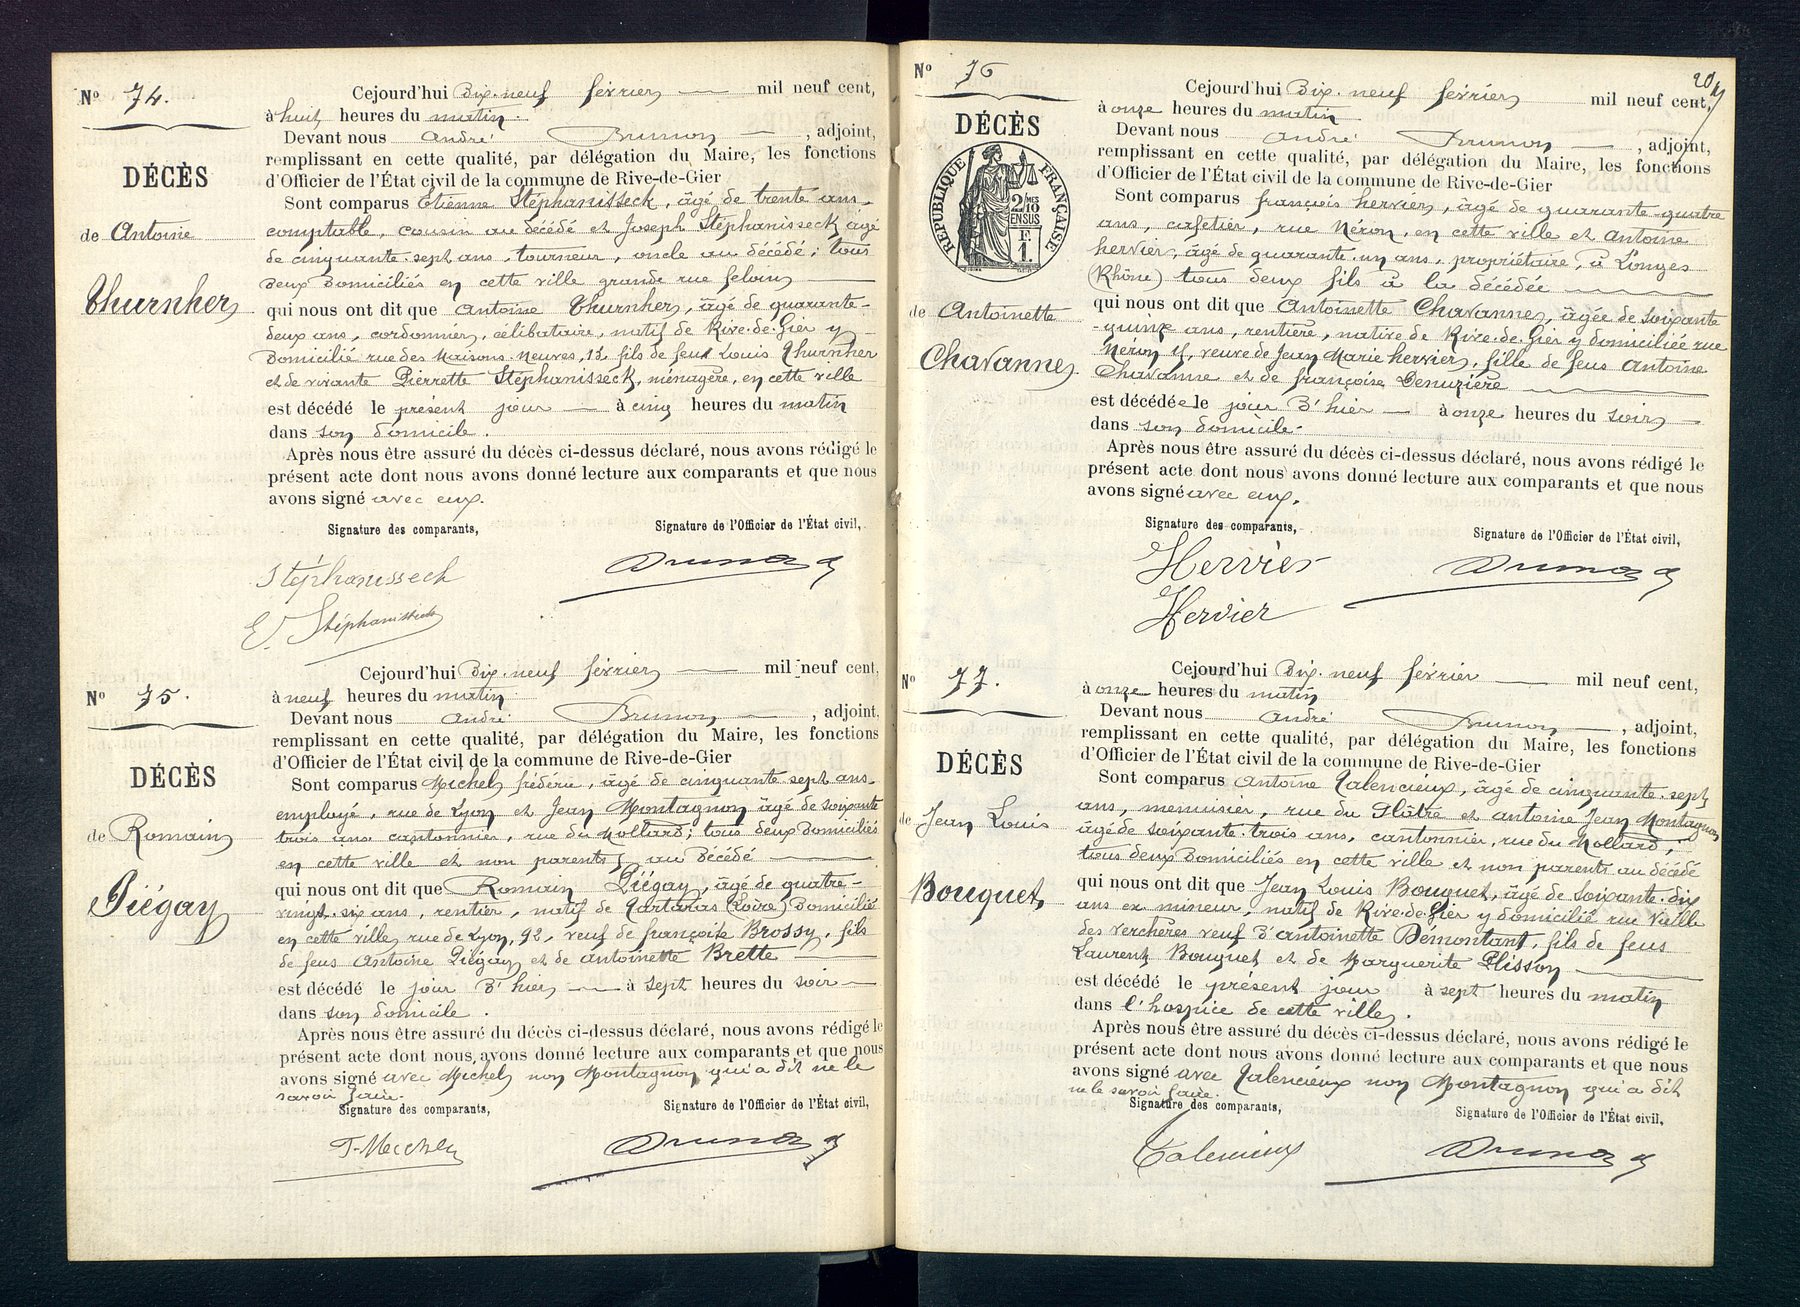 N° 74.
DÉCÈS
de Antoine
Thurnher
Cejourd'hui Dix-neuf février — mil neuf cent,
à huit heures du matin.
Devant nous André Brunon —, adjoint,
remplissant en cette qualité, par délégation du Maire, les fonctions
d'Officier de l'État civil de la commune de Rive-de-Gier
Sont comparus Etienne Stéphanisseck, âgé de trente ans,
comptable, cousin au décédé et Joseph Stéphanisseck âgé
de cinquante-sept ans, tourneur, oncle au décédé; tous
deux domiciliés en cette ville grande rue feloin
qui nous ont dit que Antoine Thurnher, âgé de quarante-
deux ans, cordonnier, célibataire, natif de Rive-de-Gier y
domicilié rue des Maisons-Neuves, 13, fils de feu Louis Thurnher
et de vivante Pierrette Stéphanisseck, ménagère, en cette ville
est décédé le présent jour — à cinq heures du matin
dans son domicile.
Après nous être assuré du décès ci-dessus déclaré, nous avons rédigé le
présent acte dont nous avons donné lecture aux comparants et que nous
avons signé avec eux.
Signature des comparants, Signature de l'Officier de l'État civil,
Stéphanisseck Brunon
E. Stéphanisseck
N° 75.
DÉCÈS
de Romain
Piégay
Cejourd'hui Dix-neuf février — mil neuf cent,
à neuf heures du matin
Devant nous André Brunon —, adjoint,
remplissant en cette qualité, par délégation du Maire, les fonctions
d'Officier de l'État civil de la commune de Rive-de-Gier
Sont comparus Michel frédéric, âgé de cinquante-sept ans
employé, rue de Lyon et Jean Montagnon âgé de soixante
trois ans cantonnier, rue du Mollard; tous deux domiciliés
en cette ville et non parents au décédé —
qui nous ont dit que Romain Piégay, âgé de quatre-
vingt-six ans, rentier, natif de Tartaras (Loire) domicilié
en cette ville, rue de Lyon, 92, veuf de françoise Brossy, fils
de feus Antoine Piégay et de Antoinette Brette —
est décédé le jour d'hier — à sept heures du soir —
dans son domicile.
Après nous être assuré du décès ci-dessus déclaré, nous avons rédigé le
présent acte dont nous avons donné lecture aux comparants et que nous
avons signé avec Michel non Montagnon qui a dit ne le
savoir faire.
Signature des comparants, Signature de l'Officier de l'État civil,
F. Michel Brunon
N° 76
DÉCÈS
RÉPUBLIQUE FRANÇAISE
2/10 MES
EN SUS
F.
1.
de Antoinette
Chavanne
Cejourd'hui Dix-neuf février mil neuf cent,
à onze heures du matin
Devant nous André Brunon —, adjoint,
remplissant en cette qualité, par délégation du Maire, les fonctions
d'Officier de l'État civil de la commune de Rive-de-Gier
Sont comparus françois hervier, âgé de quarante-quatre
ans, cafetier, rue Néron, en cette ville et Antoine
hervier, âgé de quarante-un ans, propriétaire, à Longes
(Rhône) tous deux fils à la décédée
qui nous ont dit que Antoinette Chavanne, âgée de soixante
-quinze ans, rentière, native de Rive-de-Gier y domiciliée rue
Néron 11, veuve de Jean Marie hervier, fille de feus Antoine
Chavanne et de françoise Denuzière
est décédée le jour d'hier — à onze heures du soir
dans son domicile.
Après nous être assuré du décès ci-dessus déclaré, nous avons rédigé le
présent acte dont nous avons donné lecture aux comparants et que nous
avons signé avec eux.
Signature des comparants, Signature de l'Officier de l'État civil,
Hervier Brunon
Hervier
N° 77.
DÉCÈS
de Jean Louis
Bouquet
Cejourd'hui Dix-neuf février — mil neuf cent,
à onze heures du matin
Devant nous André Brunon —, adjoint,
remplissant en cette qualité, par délégation du Maire, les fonctions
d'Officier de l'État civil de la commune de Rive-de-Gier
Sont comparus Antoine Valencieux, âgé de cinquante-sept
ans, menuisier, rue du Plâtre et antoine Jean Montagnon
âgé de soixante-trois ans, cantonnier, rue du Mollard;
tous deux domiciliés en cette ville et non parents au décédé
qui nous ont dit que Jean Louis Bouquet, âgé de soixante-dix
ans ex mineur, natif de Rive-de-Gier y domicilié rue Vieille
des Verchères veuf d'antoinette Démontant, fils de feus
Laurent Bouquet et de Marguerite Plisson
est décédé le présent jour à sept heures du matin
dans l'hospice de cette ville.
Après nous être assuré du décès ci-dessus déclaré, nous avons rédigé le
présent acte dont nous avons donné lecture aux comparants et que nous
avons signé avec Valencieux non Montagnon qui a dit
ne le savoir faire.
Signature des comparants, Signature de l'Officier de l'État civil,
Valencieux Brunon